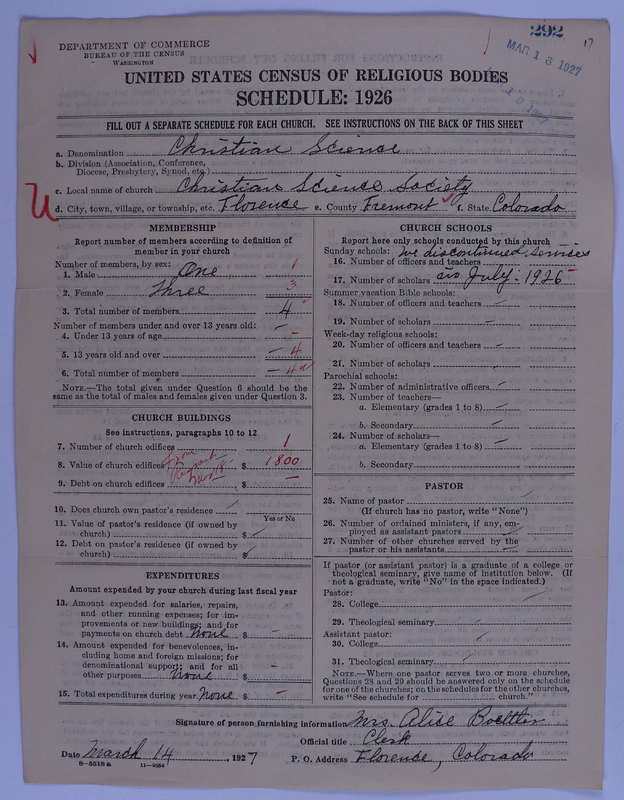 292
17
MAR 16 1927
DEPARTMENT OF COMMERCE
BUREAU OF THE CENSUS
WASHINGTON
UNITED STATES CENSUS OF RELIGIOUS BODIES
SCHEDULE: 1926
FILL OUT A SEPARATE SCHEDULE FOR EACH CHURCH. SEE INSTRUCTIONS ON THE BACK OF THIS SHEET
a. Denomination Christian Science
b. Division (Association, Conference,
Diocese, Presbytery, Synod, etc.)
c. Local name of church Christian Science Society
d. City, town, village, or township, etc. Florence e. County Fremont f. State Colorado
MEMBERSHIP
Report number of members according to definition of
member in your church
Number of members, by sex:
1. Male One 1
2. Female Three 3
3. Total number of members 4
Number of members under and over 13 years old:
4. Under 13 years of age –
5. 13 years old and over – 4
6. Total number of members – 4
NOTE.—The total given under Question 6 should be the
same as the total of males and females given under Question 3.
CHURCH BUILDINGS
See instructions, paragraphs 10 to 12
7. Number of church edifices 1
8. Value of church edifices $ 1800
9. Debt on church edifices $ –
10. Does church own pastor's residence
Yes or No
11. Value of pastor's residence (if owned by
church) $
12. Debt on pastor's residence (if owned by
church) $
EXPENDITURES
Amount expended by your church during last fiscal year
13. Amount expended for salaries, repairs,
and other running expenses; for im-
provements or new buildings; and for
payments on church debt none $ –
14. Amount expended for benevolences, in-
cluding home and foreign missions; for
denominational support; and for all
other purposes none $ –
15. Total expenditures during year none $ –
CHURCH SCHOOLS
Report here only schools conducted by this church
Sunday schools: we discontinued services
16. Number of officers and teachers
17. Number of scholars July - 1926
Summer vacation Bible schools:
18. Number of officers and teachers
19. Number of scholars
Week-day religious schools:
20. Number of officers and teachers
21. Number of scholars
Parochial schools:
22. Number of administrative officers
23. Number of teachers—
a. Elementary (grades 1 to 8)
b. Secondary
24. Number of scholars—
a. Elementary (grades 1 to 8)
b. Secondary
PASTOR
25. Name of pastor
(If church has no pastor, write "None")
26. Number of ordained ministers, if any, em-
ployed as assistant pastors
27. Number of other churches served by the
pastor or his assistants
If pastor (or assistant pastor) is a graduate of a college or
theological seminary, give name of institution below. (If
not a graduate, write "No" in the space indicated.)
Pastor:
28. College
29. Theological seminary
Assistant pastor:
30. College
31. Theological seminary
NOTE.—Where one pastor serves two or more churches,
Questions 28 and 29 should be answered only on the schedule
for one of the churches; on the schedules for the other churches,
write "See schedule for church."
Signature of person furnishing information Mrs. Alise
Official title Clerk
Date March 14, 1927 P. O. Address Florence, Colorado
8—5518 a 11—9054